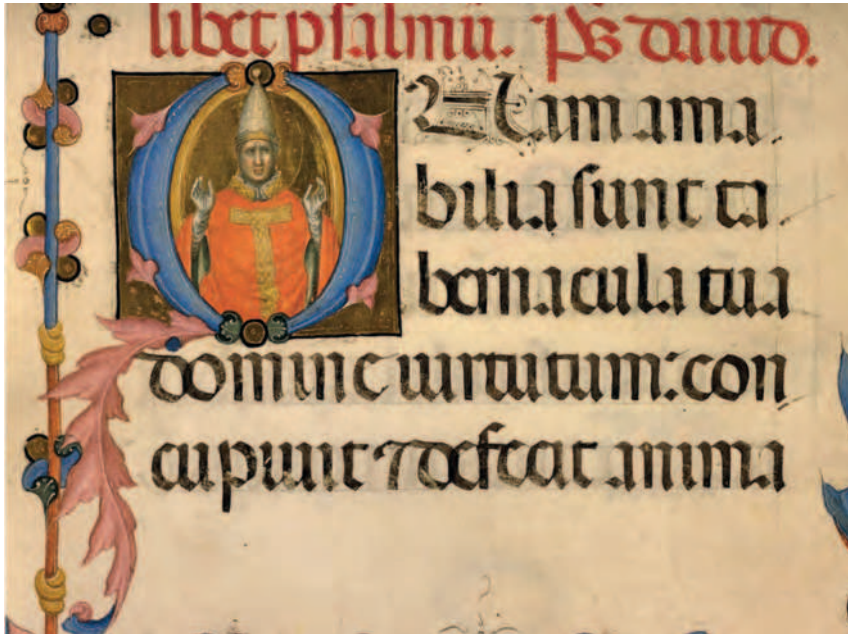 libet psalmii. ps dauid.
Quam ama
bilia sunt ta
bernacula tua
domine uirtutum: con
cupiuit ⁊ defecit anima